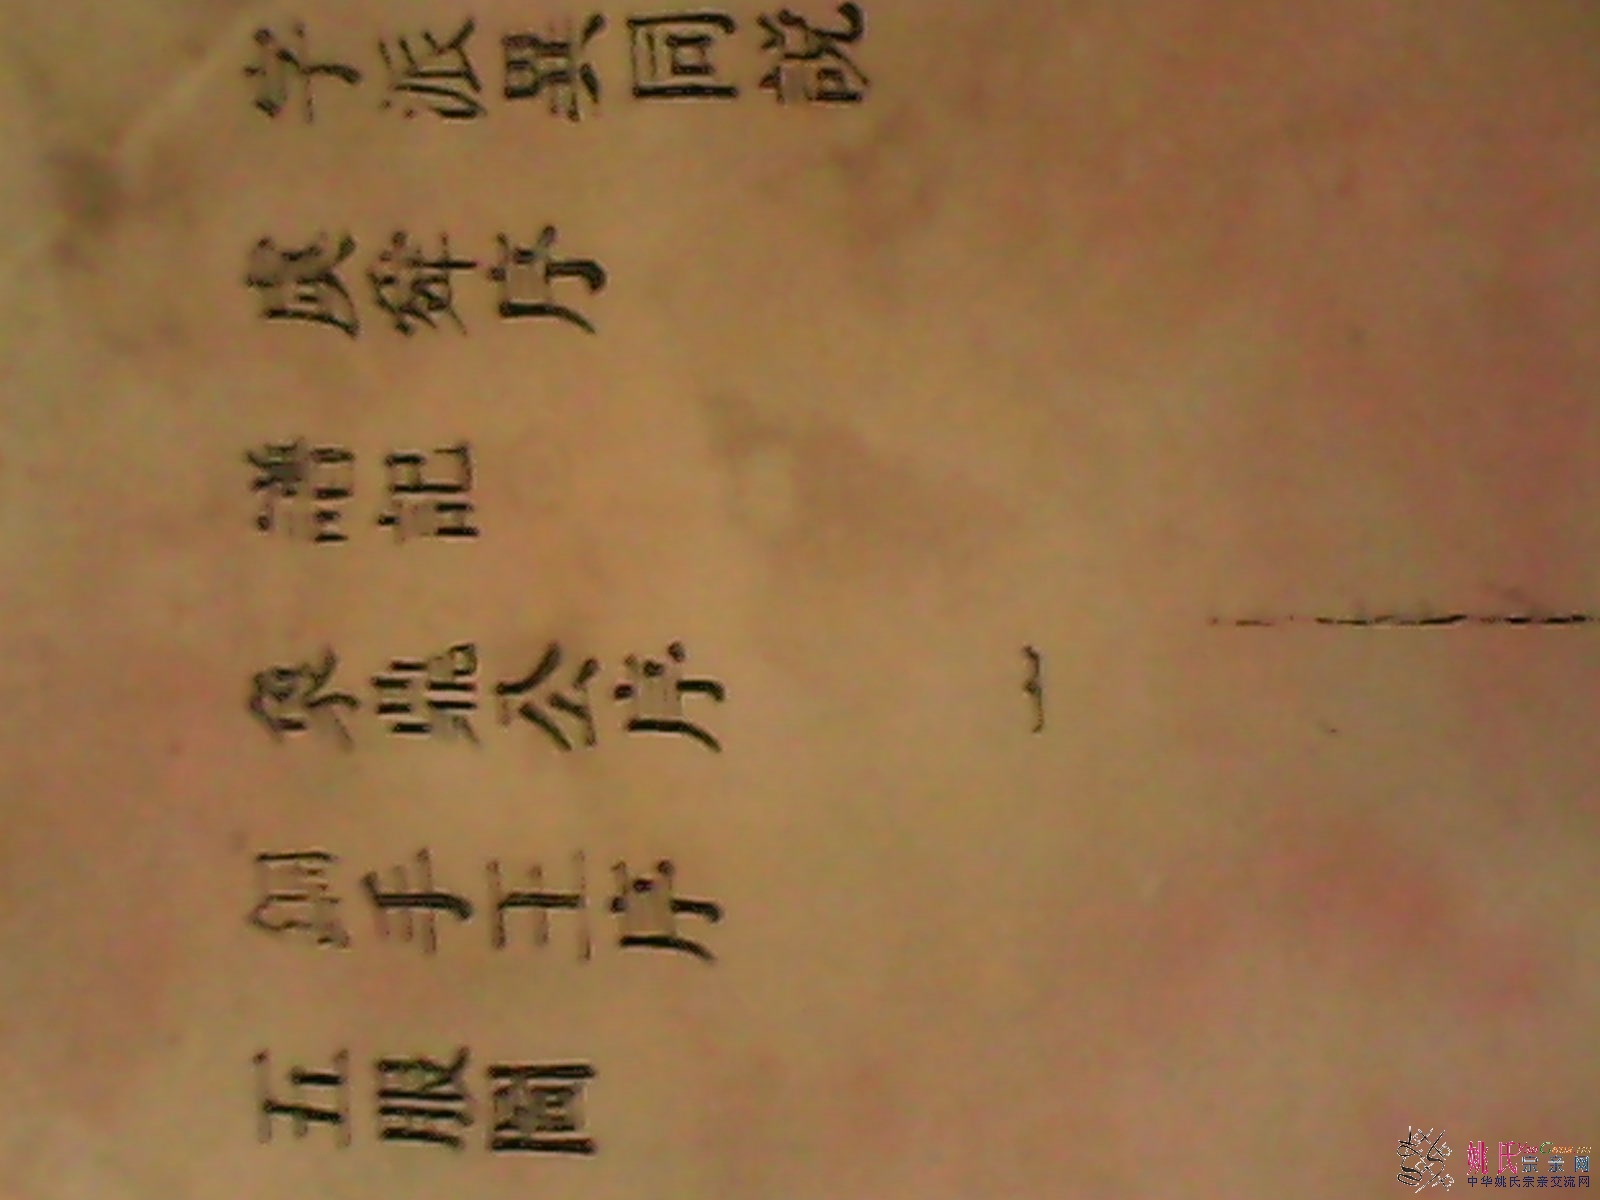 字派異同說
序
譜記
鼎公序
手王序
五服圖
姚氏宗亲网
中华姚氏宗亲交流网